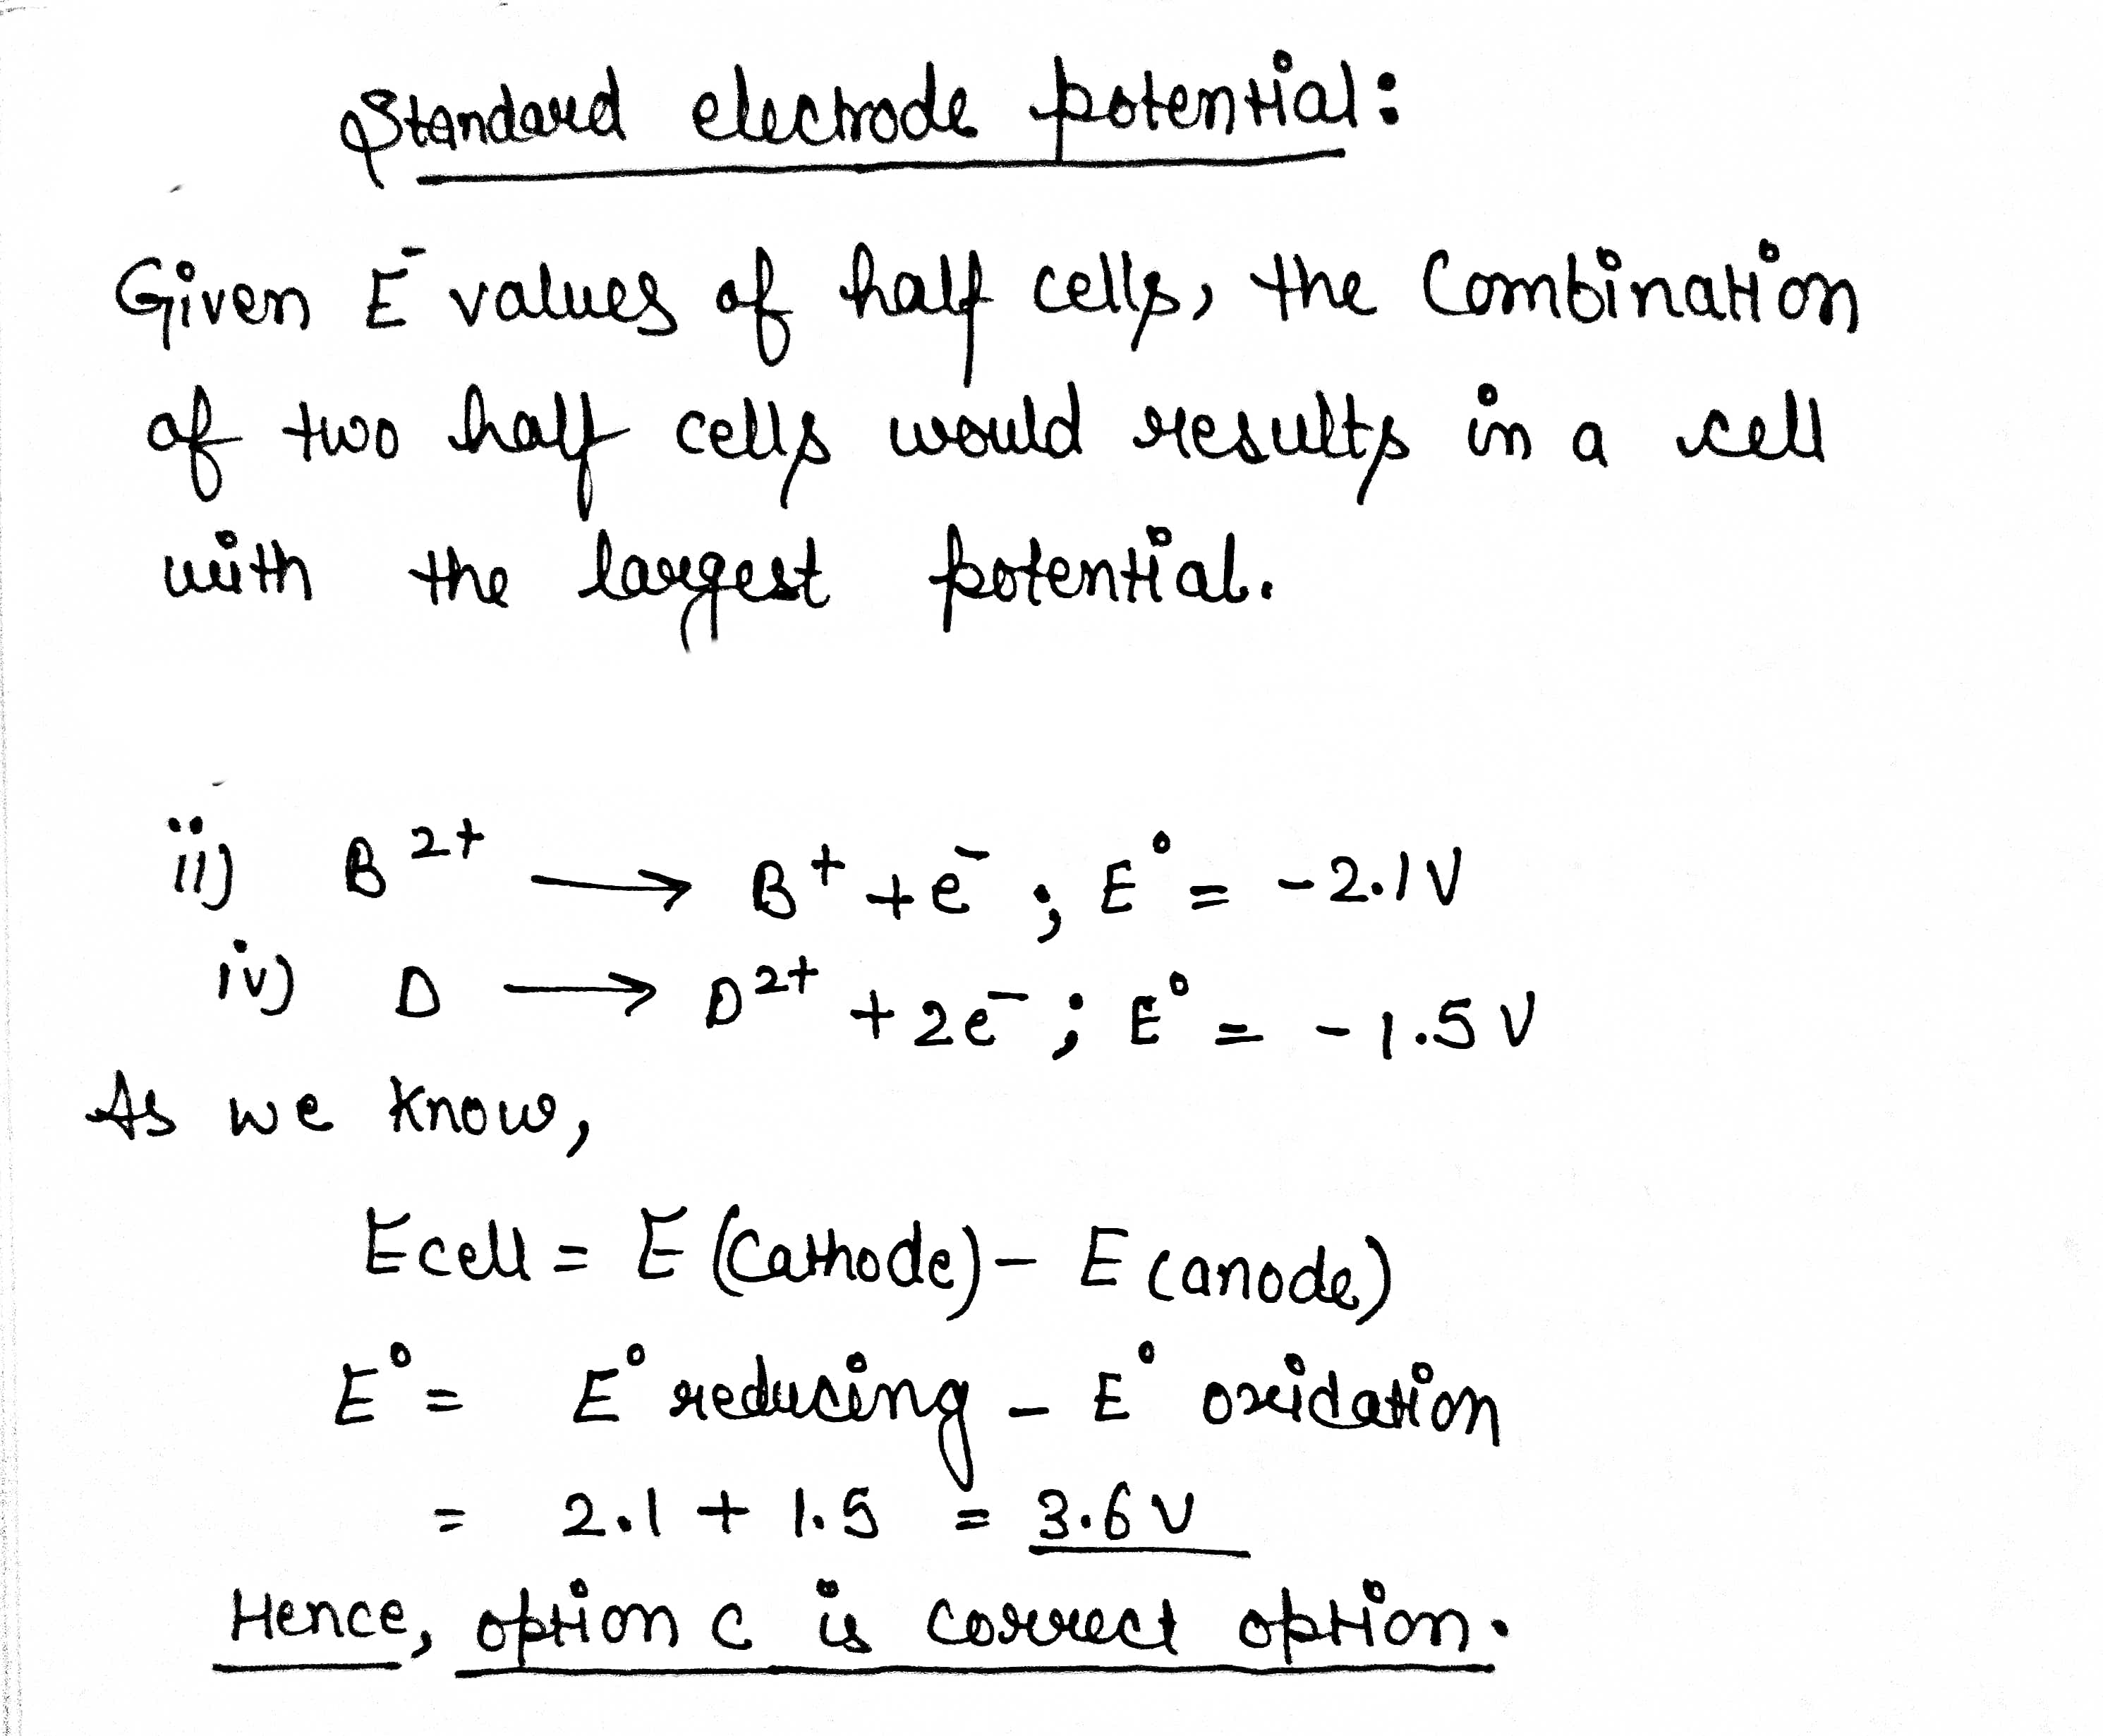 Standard electrode potential:
Given E⁻ values of half cells, the Combination
of two half cells would results in a cell
with the largest potential.
ii) B²⁺ ⟶ B⁺ + e⁻ ; E° = -2.1V
iv) D ⟶ D²⁺ + 2e⁻ ; E° = -1.5V
As we Know,
Ecell = E (Cathode) - E (anode)
E° = E° reducing - E° oxidation
= 2.1 + 1.5 = 3.6V
Hence, option C is correct option.